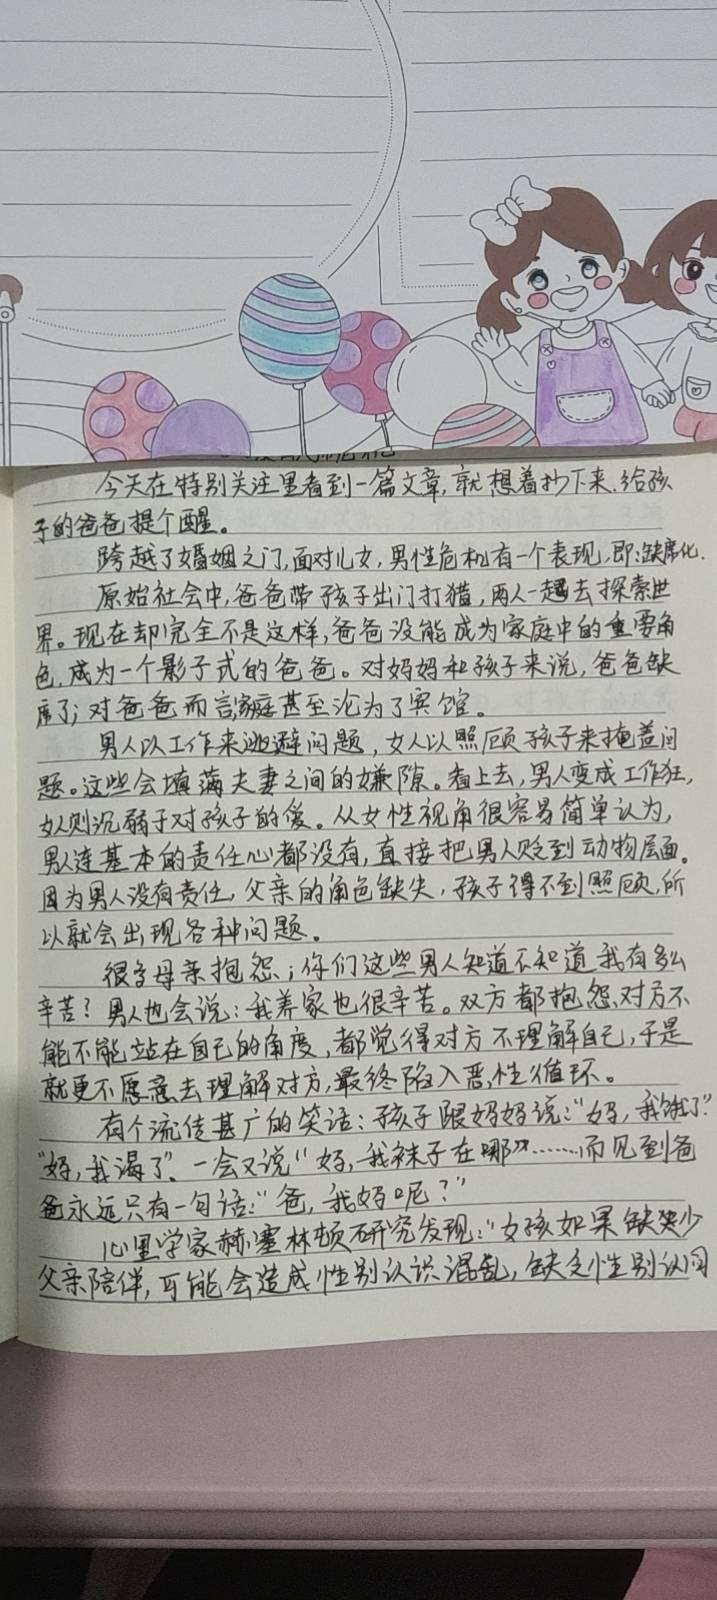 今天在特别关注里看到一篇文章,就想着抄下来.给孩
子的爸爸提个醒。
跨越了婚姻之门,面对儿女,男性危机有一个表现,即:缺席化.
原始社会中,爸爸带孩子出门打猎,两人一起去探索世
界。现在却完全不是这样,爸爸没能成为家庭中的重要角
色,成为一个影子式的爸爸。对妈妈和孩子来说,爸爸缺
席了;对爸爸而言,家庭甚至沦为了宾馆。
男人以工作来逃避问题,女人以照顾孩子来掩盖问
题。这些会填满夫妻之间的嫌隙。看上去,男人变成工作狂,
女人则沉弱于对孩子的爱。从女性视角很容易简单认为,
男人连基本的责任心都没有,直接把男人贬到动物层面。
因为男人没有责任,父亲的角色缺失,孩子得不到照顾,所
以就会出现各种问题。
很多母亲抱怨;你们这些男人知道不知道我有多么
辛苦?男人也会说:我养家也很辛苦。双方都抱怨对方不
能不能站在自己的角度,都觉得对方不理解自己,于是
就更不愿意去理解对方,最终陷入恶性循环。
有个流传甚广的笑话:孩子跟妈妈说:"妈,我饿了"
"妈,我渴了".一会又说"妈,我袜子在哪"……而见到爸
爸永远只有一句话:"爸,我妈呢?"
心里学家赫塞林顿研究发现:"女孩如果缺少
父亲陪伴,可能会造成性别认识混乱,缺乏性别认同